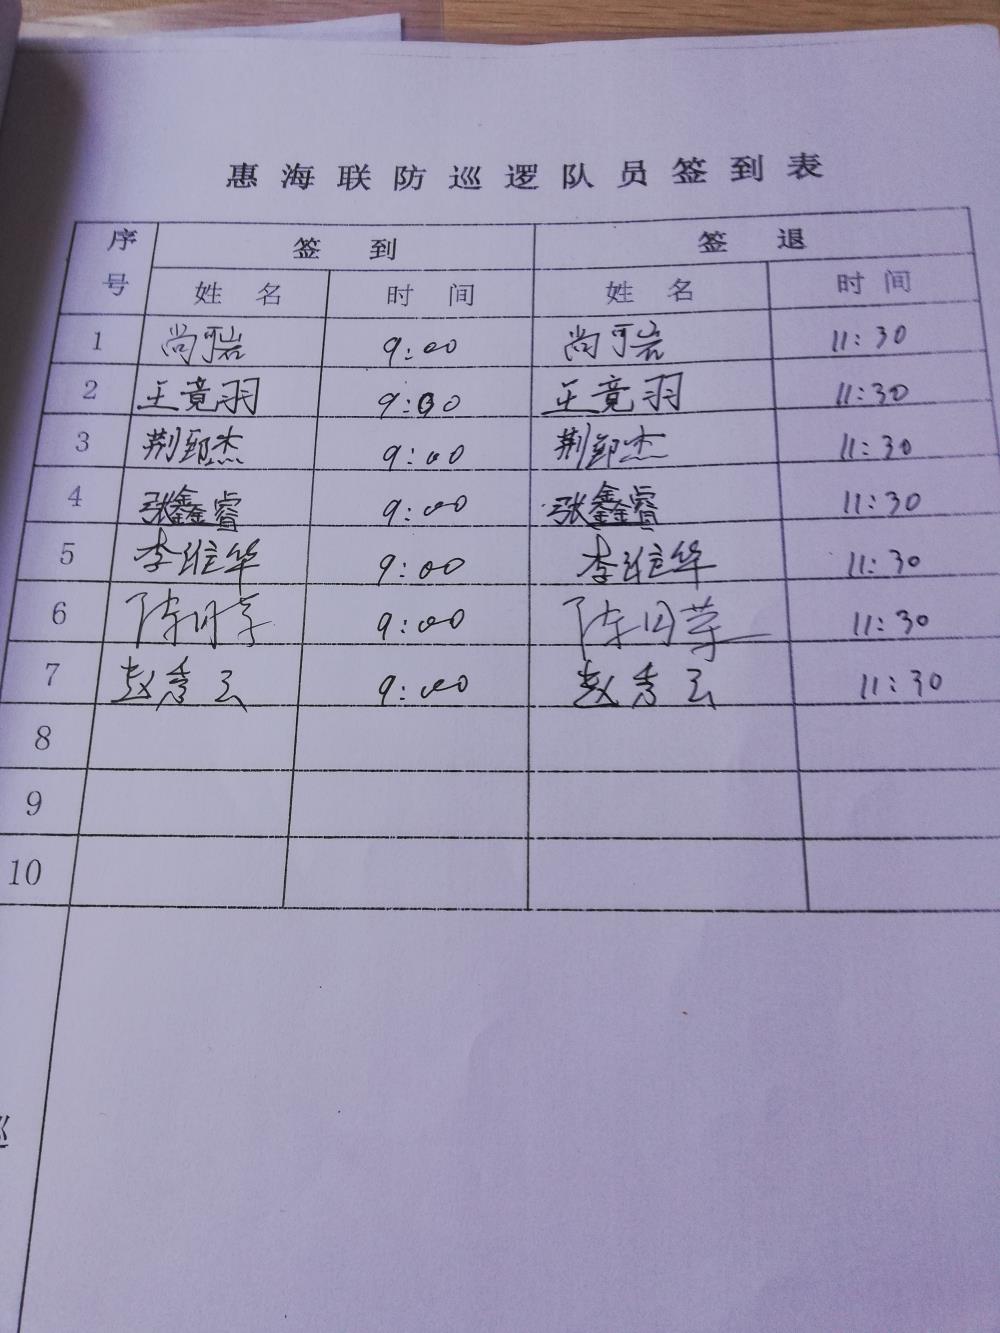 惠海联防巡逻队员签到表
序号 签到 签退
姓名 时间 姓名 时间
1 尚可岩 9:00 尚可岩 11:30
2 王竟羽 9:00 王竟羽 11:30
3 荆郅杰 9:00 荆郅杰 11:30
4 张鑫睿 9:00 张鑫睿 11:30
5 李维华 9:00 李维华 11:30
6 陈 9:00 陈 11:30
7 赵秀云 9:00 赵秀云 11:30
8
9
10
巡